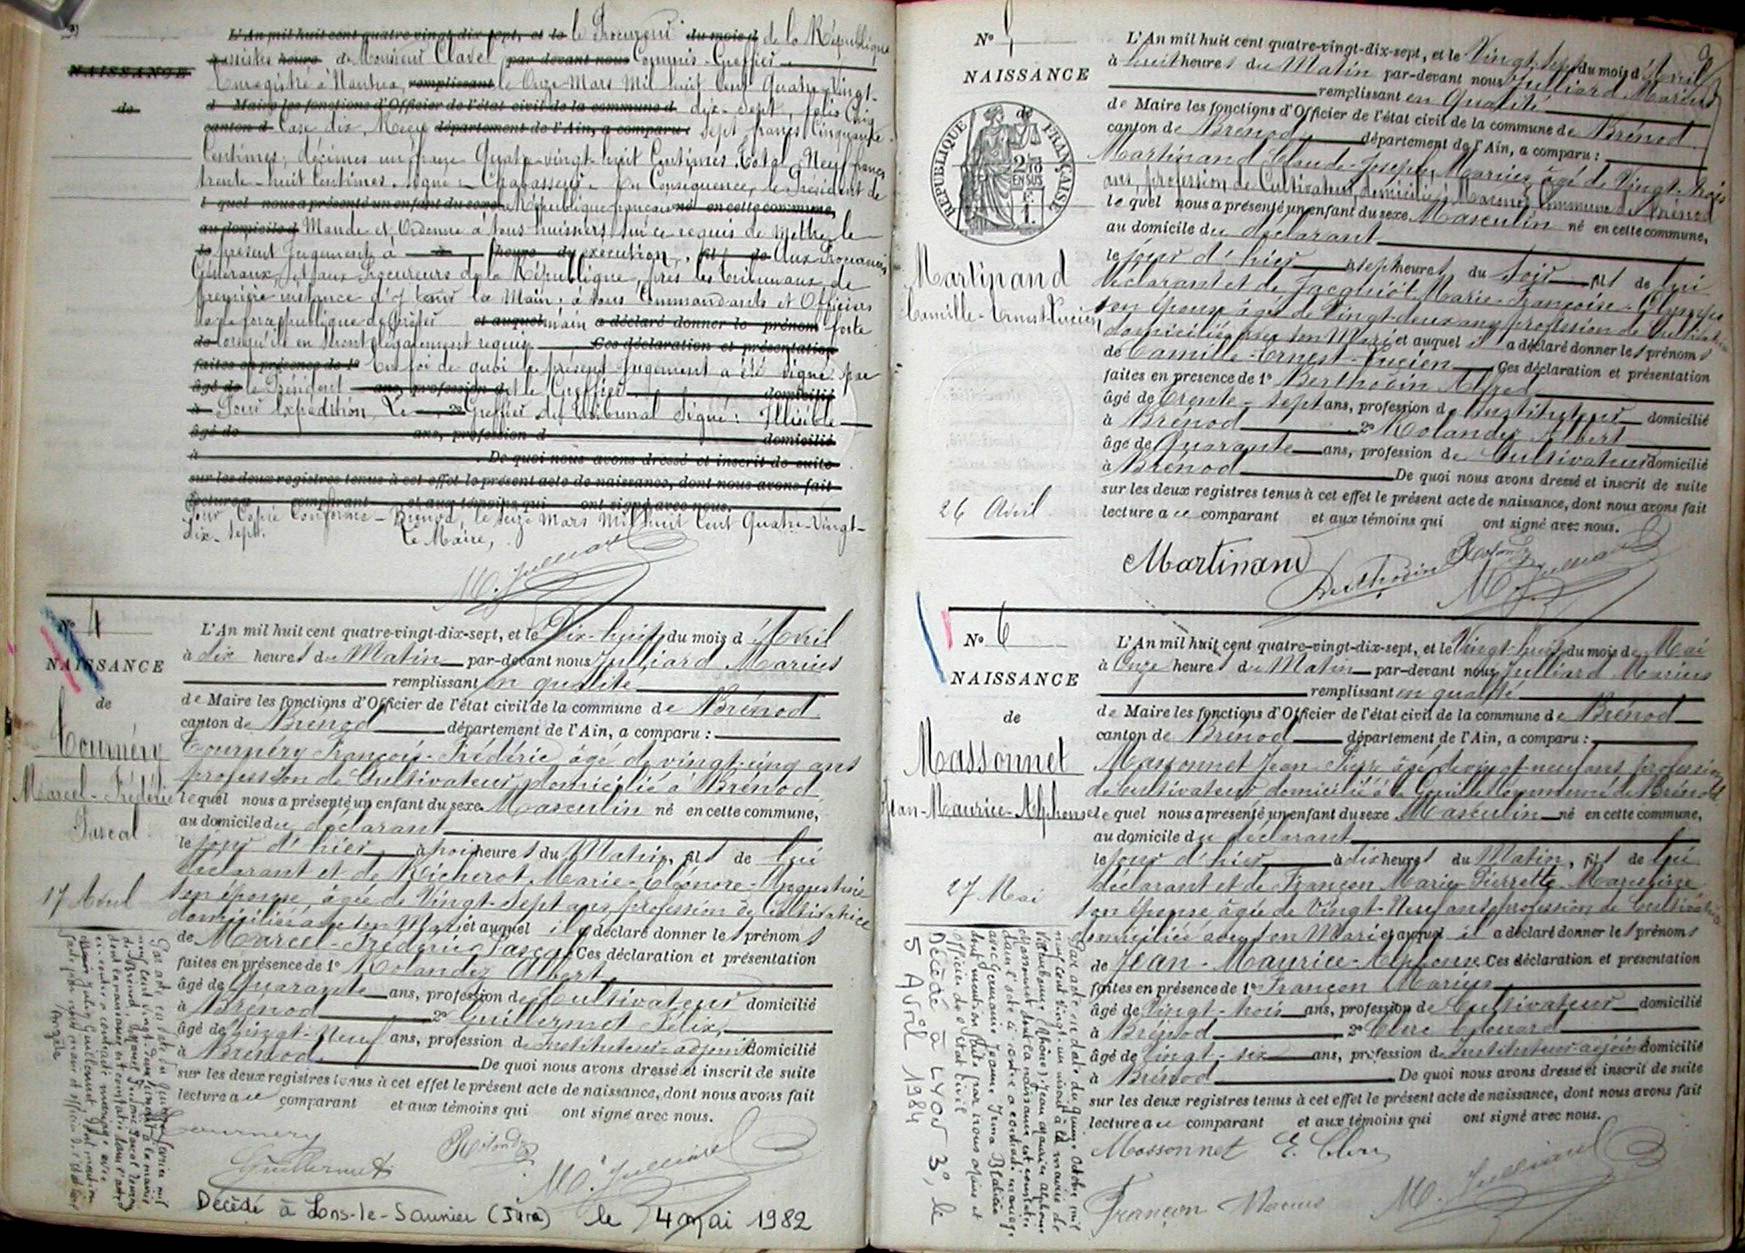 L'An mil huit cent quatre-vingt-dix-sept, et le le Procureur du mois d de la République
assistés heure de Monsieur Clavel par-devant nous Commis-Greffier
NAISSANCE
Enregistré à Nantua, remplissant le Onze Mars Mil huit Cent Quatre-Vingt-
de
d Maire les fonctions d'Officier de l'état civil de la commune d dix-sept, folio Cinq
canton d Case dix, Reçu département de l'Ain, a comparu : Sept francs Cinquante
Centimes, décimes un franc Quatre-vingt-huit Centimes. Total Neuf francs
trente-huit Centimes. Signé : Chabasseur. En Conséquence, le Président de
l quel nous a présenté un enfant du sexe République française né en cette commune,
au domicile d Mande et Ordonne à tous huissiers sur ce requis de mettre le
le présent Jugement à à heure du exécution, fil de Aux Procureurs
Généraux, et aux Procureurs de la République, près les tribunaux de
première instance d'y tenir la Main, à tous Commandants et Officiers
de la force publique de prêter et auquel main a déclaré donner le prénom forte
de lorsqu'ils en seront légalement requis Ces déclaration et présentation
faites en présence de 1° En foi de quoi le présent Jugement a été signé par
âgé de le Président ans, profession d et le Greffier domicilié
à Pour Expédition, Le 2° Greffier du Tribunal Signé : Illisible
âgé de ans, profession d domicilié
à De quoi nous avons dressé et inscrit de suite
sur les deux registres tenus à cet effet le présent acte de naissance, dont nous avons fait
lecture a comparant et aux témoins qui ont signé avec nous.
Pour Copie Conforme - Brénod, le Seize Mars Mil huit Cent Quatre-Vingt-
dix-sept. Le Maire,
M. Julliard
N° 4
NAISSANCE
de
Tournéry
Marcel-Frédéric
Pascal
17 Avril
L'An mil huit cent quatre-vingt-dix-sept, et le Dix-huit du mois d'Avril
à dix heures du Matin par-devant nous Julliard Marius
remplissant en qualité
de Maire les fonctions d'Officier de l'état civil de la commune de Brénod
canton de Brénod département de l'Ain, a comparu :
Tournéry François-Frédéric âgé de vingt-cinq ans
profession de Cultivateur, domicilié à Brénod
lequel nous a présenté un enfant du sexe Masculin né en cette commune,
au domicile du déclarant
le jour d'hier à trois heures du Matin, fils de lui
déclarant et de Richerot Marie-Eléonore-Augustine
son épouse, âgée de Vingt-sept ans, profession de Cultivatrice
domiciliée avec son Mari et auquel il a déclaré donner les prénoms
de Marcel-Frédéric Pascal Ces déclaration et présentation
faites en présence de 1° Rolandez Albert
âgé de Quarante ans, profession de Cultivateur domicilié
à Brénod 2° Guillermet Félix,
âgé de Vingt-Neuf ans, profession d'Instituteur-adjoint domicilié
à Brénod De quoi nous avons dressé et inscrit de suite
sur les deux registres tenus à cet effet le présent acte de naissance, dont nous avons fait
lecture au comparant et aux témoins qui ont signé avec nous.
Tournery
Guillermet
M. Julliard
Décédé à Lons-le-Saunier (Jura) le 4 mai 1982
N° 5
NAISSANCE
de
RÉPUBLIQUE FRANÇAISE
Martinand
Camille-Ernest-Lucien
26 Avril
L'An mil huit cent quatre-vingt-dix-sept, et le Vingt-sept du mois d'Avril
à huit heures du Matin par-devant nous Julliard Marius
remplissant en Qualité
de Maire les fonctions d'Officier de l'état civil de la commune de Brénod
canton de Brénod département de l'Ain, a comparu :
Martinand Claude-Joseph Marius, âgé de Vingt-trois
ans, profession de Cultivateur, domicilié à Macconod, Commune de Brénod
lequel nous a présenté un enfant du sexe Masculin né en cette commune,
au domicile du déclarant
le jour d'hier à sept heures du Soir fils de lui
déclarant et de Jacquiot Marie-Françoise-Olympe
son épouse âgée de Vingt-deux ans profession de Cultivatrice
domiciliée avec son Mari et auquel il a déclaré donner les prénoms
de Camille-Ernest-Lucien Ces déclaration et présentation
faites en présence de 1° Berthouin Alfred
âgé de Trente-sept ans, profession d'Instituteur domicilié
à Brénod 2° Rolandez Albert
âgé de Quarante ans, profession de Cultivateur domicilié
à Brénod De quoi nous avons dressé et inscrit de suite
sur les deux registres tenus à cet effet le présent acte de naissance, dont nous avons fait
lecture au comparant et aux témoins qui ont signé avec nous.
Martinand
M. Julliard
N° 6
NAISSANCE
de
Massonnet
Jean-Maurice-Alphonse
27 Mai
L'An mil huit cent quatre-vingt-dix-sept, et le Vingt-huit du mois de Mai
à Onze heures du Matin par-devant nous Julliard Marius
remplissant en qualité
de Maire les fonctions d'Officier de l'état civil de la commune de Brénod
canton de Brénod département de l'Ain, a comparu :
Massonnet Jean-Pierre âgé de vingt neuf ans profession
de cultivateur domicilié à la Gouille Commune de Brénod
lequel nous a présenté un enfant du sexe Masculin né en cette commune,
au domicile du déclarant
le jour d'hier à dix heures du Matin, fils de lui
déclarant et de Françon Marie Pierrette Marceline
son épouse âgée de Vingt-Neuf ans profession de Cultivatrice
domiciliée avec son Mari et auquel il a déclaré donner les prénoms
de Jean-Maurice-Alphonse Ces déclaration et présentation
faites en présence de 1° Françon Marius
âgé de Vingt-trois ans, profession de Cultivateur domicilié
à Brénod 2° Clerc Edouard
âgé de Vingt-six ans, profession d'Instituteur-adjoint domicilié
à Brénod De quoi nous avons dressé et inscrit de suite
sur les deux registres tenus à cet effet le présent acte de naissance, dont nous avons fait
lecture au comparant et aux témoins qui ont signé avec nous.
Massonnet E. Clerc
Françon Marius M. Julliard
Décédé à LYON 3°, le
5 Avril 1984